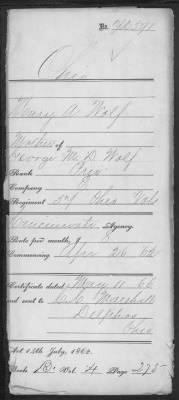 No.
Ohio
Mary A Wolf
Mother of
George M. D. Wolf
Rank Priv
Company
Regiment 57 Ohio Vols
Cincinnati Agency.
Rate per month, $ 8
Commencing Apr 26 62
Certificate dated May 11 66
and sent to
Marshall
Delphos
Ohio
Act 14th July, 1862.
Book B. Vol. 4 Page 275